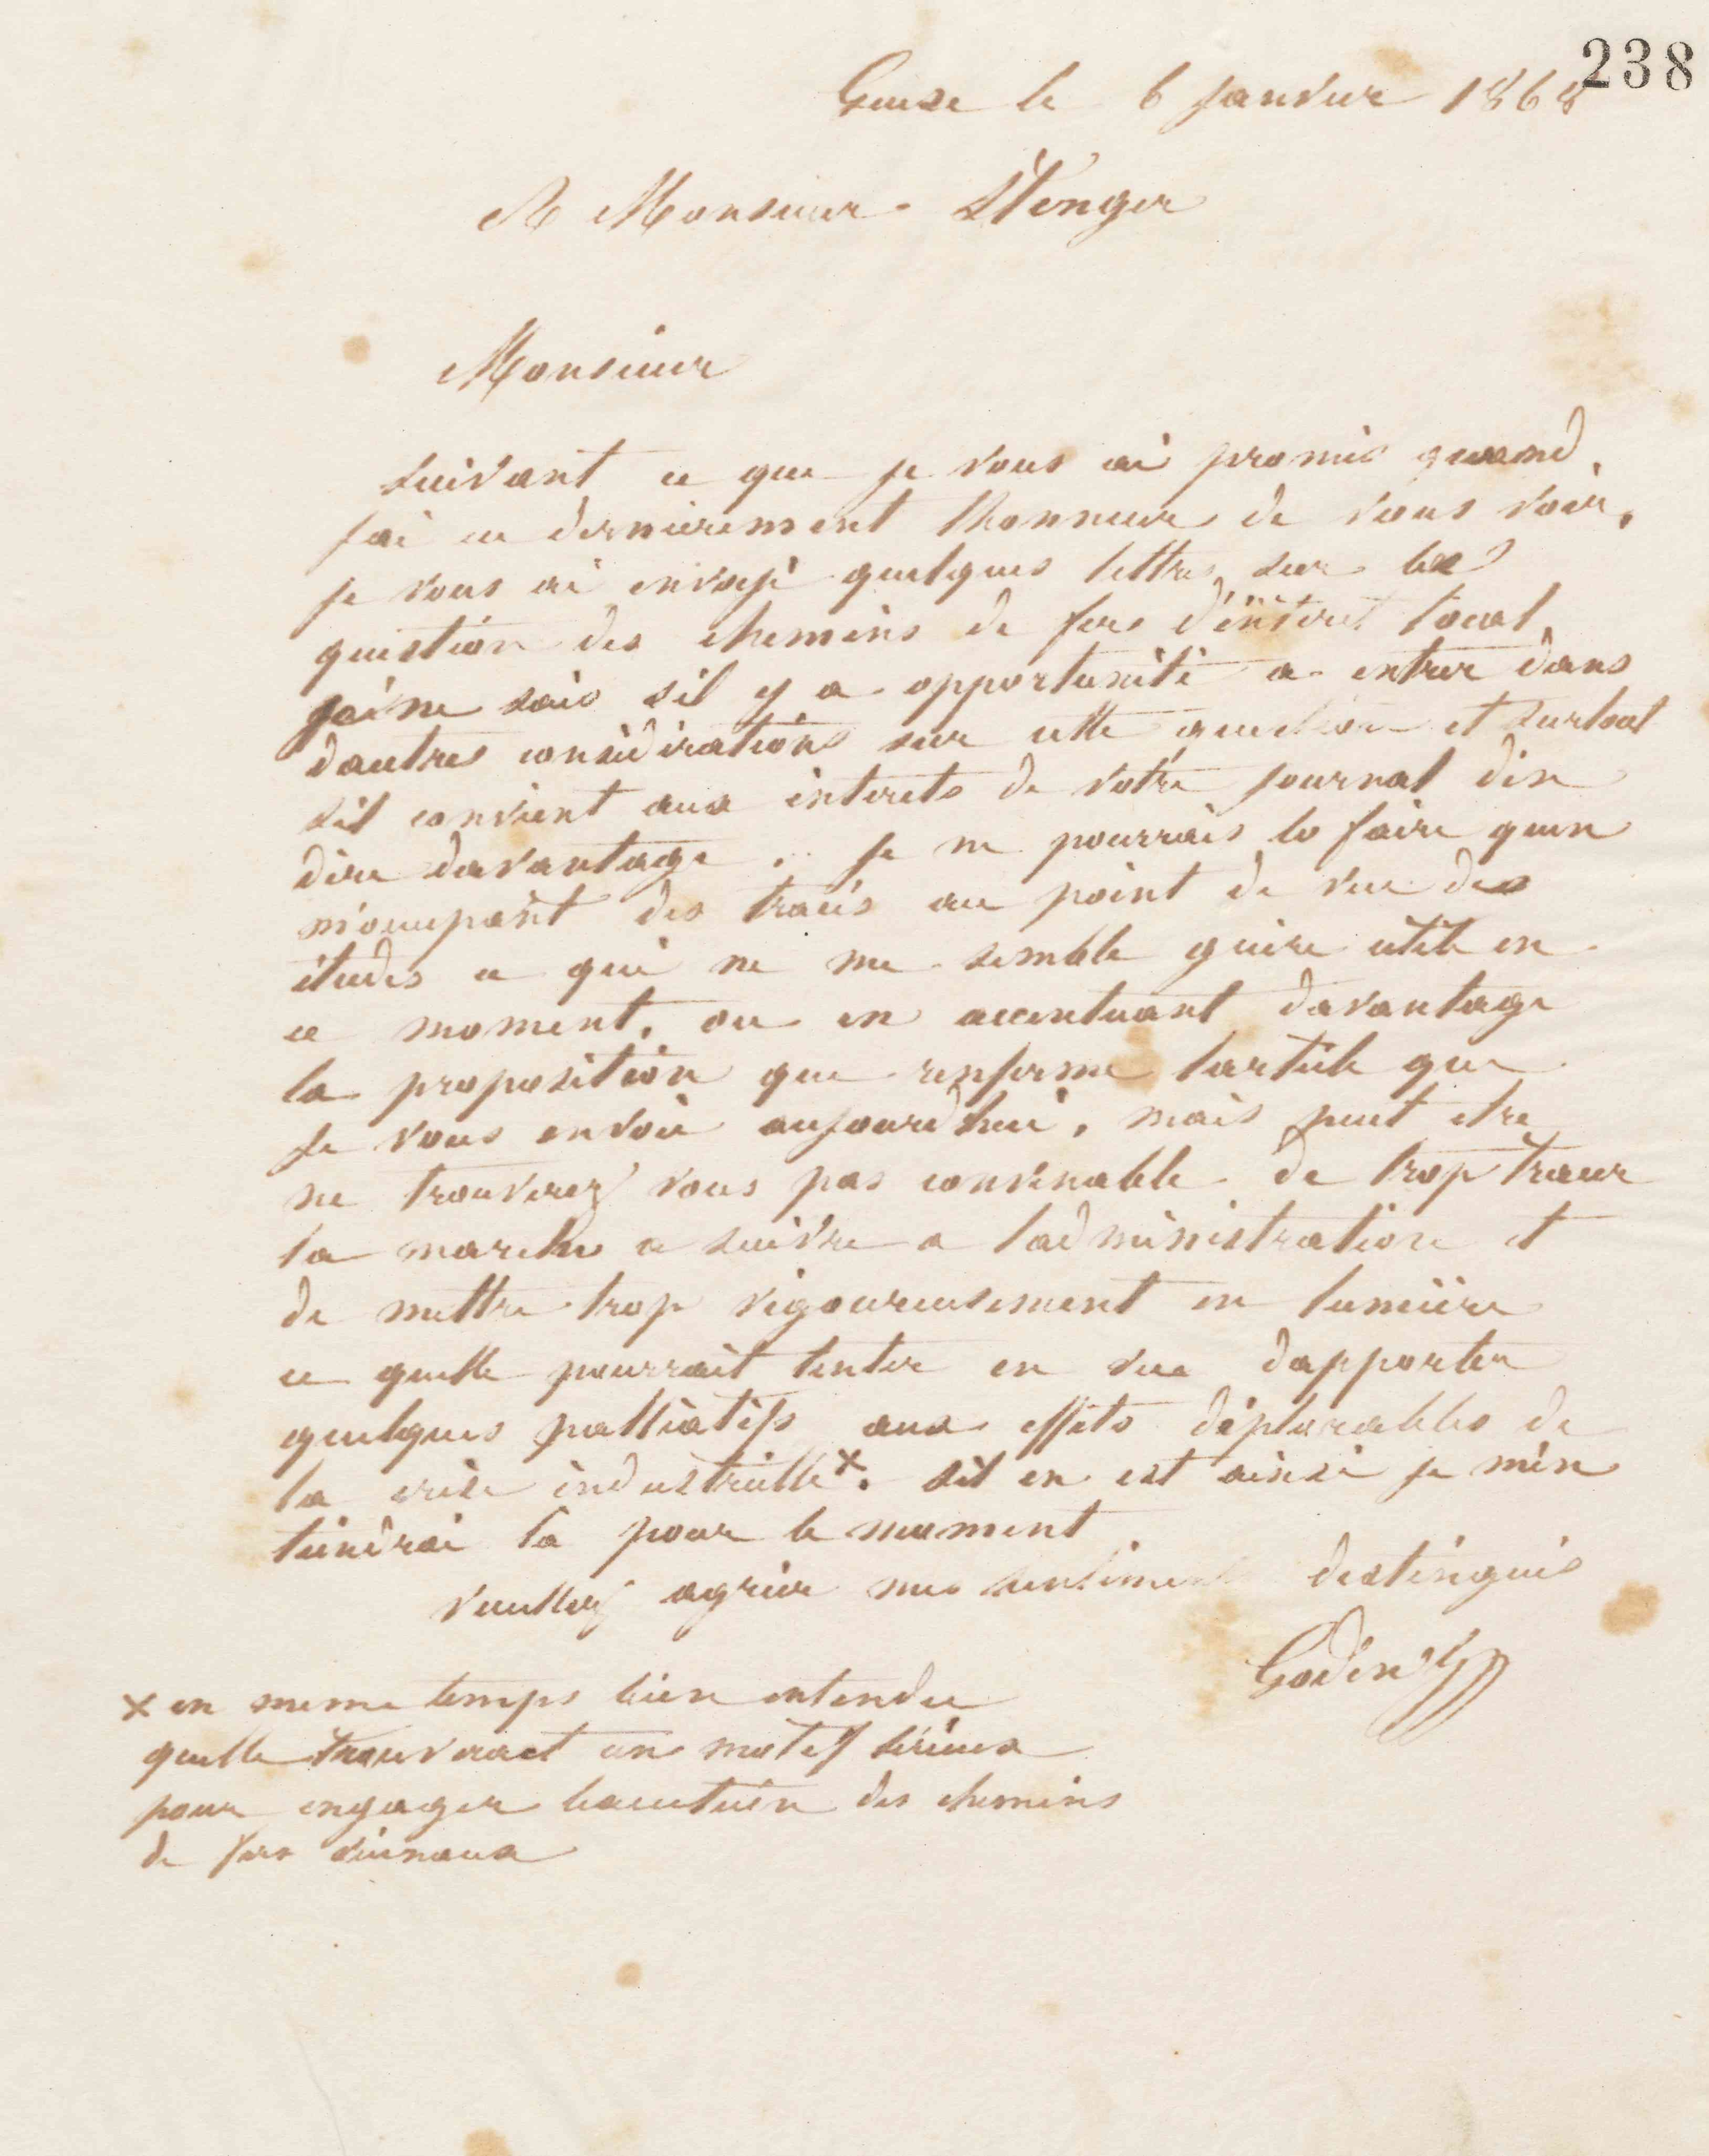 238
Guise le 6 Janvier 1868
A Monsieur Stenger
Monsieur
suivant ce que je vous ai promis quand
j'ai eu dernièrement lhonneur de vous voir,
je vous ai envoyé quelques lettres sur la
question des chemins de fers d'intéret local.
je ne sais sil y a opportunité a entrer dans
dautres considérations sur cette question et surtout
sil convient aux interets de votre journal den
dire davantage. je ne pourrais le faire quen
m'occupant des tracés au point de vue des
études ce qui ne me semble guère utile en
ce moment, ou en accentuant davantage
la proposition que renferme larticle que
je vous envoie aujourdhui, mais peut etre
ne trouverez vous pas convenable de trop tracer
la marche a suivre a ladministration et
de mettre trop vigoureusement en lumière
ce quelle pourrait tenter en vue dapporter
quelques palliatifs aux effets déplorables de
la crise industrielle x. sil en est ainsi je m'en
tiendrai là pour le moment
veuillez agréer mes sentiments distingués
Godin
x en meme temps bien entendu
quelle trouverait un motif sérieux
pour engager lexecution des chemins
de fers vicinaux